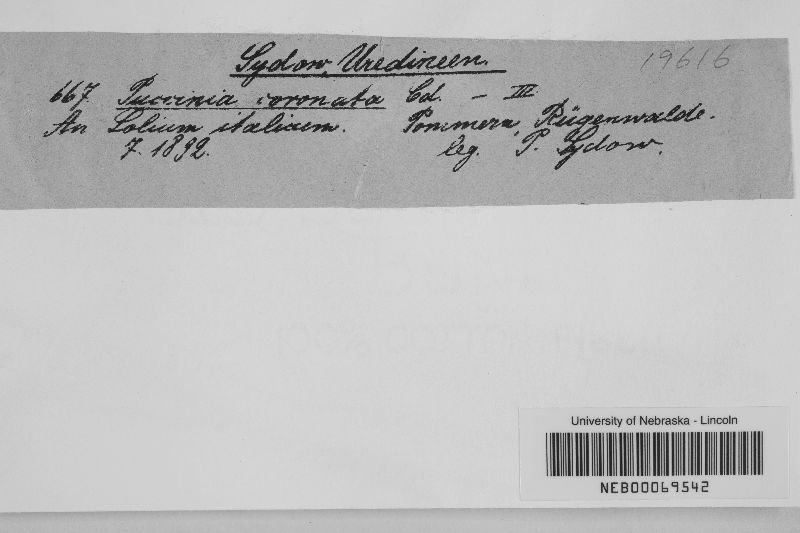 Sydow, Uredineen.
19616
667. Puccinia coronata Cd. – III.
An Lolium italicum. Pommern, Rügenwalde.
7. 1892. leg. P. Sydow.
University of Nebraska - Lincoln
NEB00069542